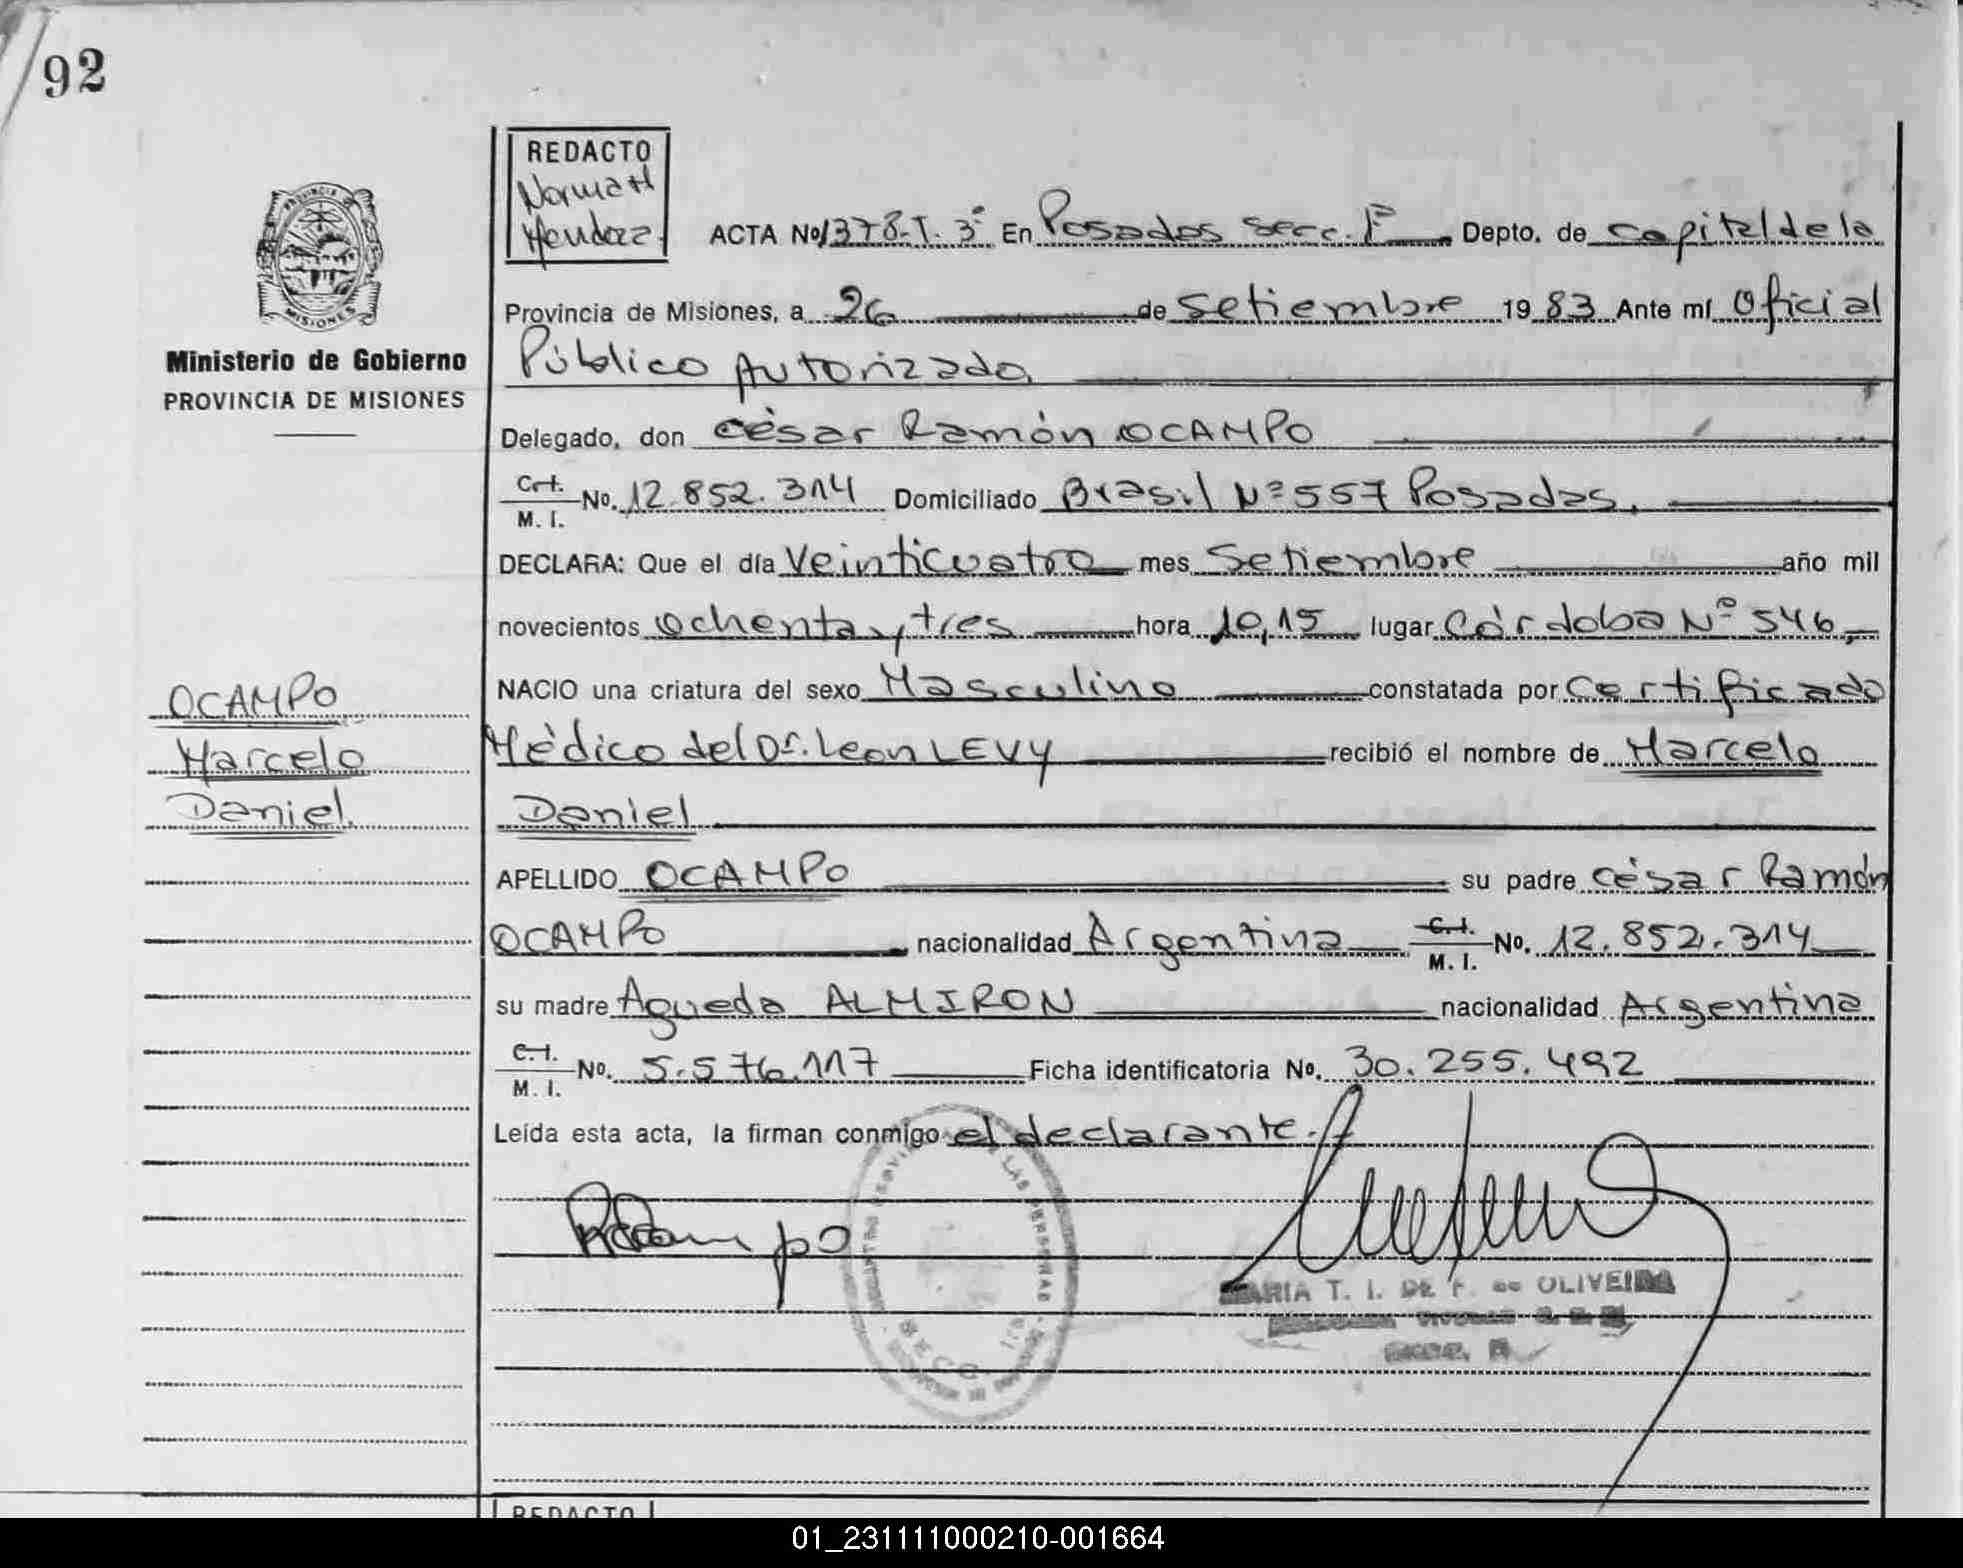 92
REDACTO
Norma H
Mendoza
ACTA No 1378-T. 3º En Posadas Secc. 1ª Depto. de Capital de la
Provincia de Misiones, a 26 de Setiembre 1983 Ante mí Oficial
Público Autorizado,
Delegado, don Césár Ramón OCAMPO
C.I. M. I. No. 12.852.314 Domiciliado Brasil Nº 557 Posadas,
DECLARA: Que el día Veinticuatro mes Setiembre año mil
novecientos ochenta y tres hora 10,15 lugar Córdoba Nº 546,
NACIO una criatura del sexo Masculino constatada por Certificado
Médico del Dr. Leon LEVY recibió el nombre de Marcelo
Daniel
APELLIDO OCAMPO su padre César Ramón
OCAMPO nacionalidad Argentina C.I. M. I. No. 12.852.314
su madre Agueda ALMIRON nacionalidad Argentina
C.I. M. I. No. 5.576.117 Ficha identificatoria No. 30.255.492
Leída esta acta, la firman conmigo el declarante.
MISIONES
Ministerio de Gobierno
PROVINCIA DE MISIONES
OCAMPO
Marcelo
Daniel.
ROcampo
LAS PERSONAS
SECC. 1ra
MARIA T. I. DE F. de OLIVEIRA
REDACTO
01_231111000210-001664